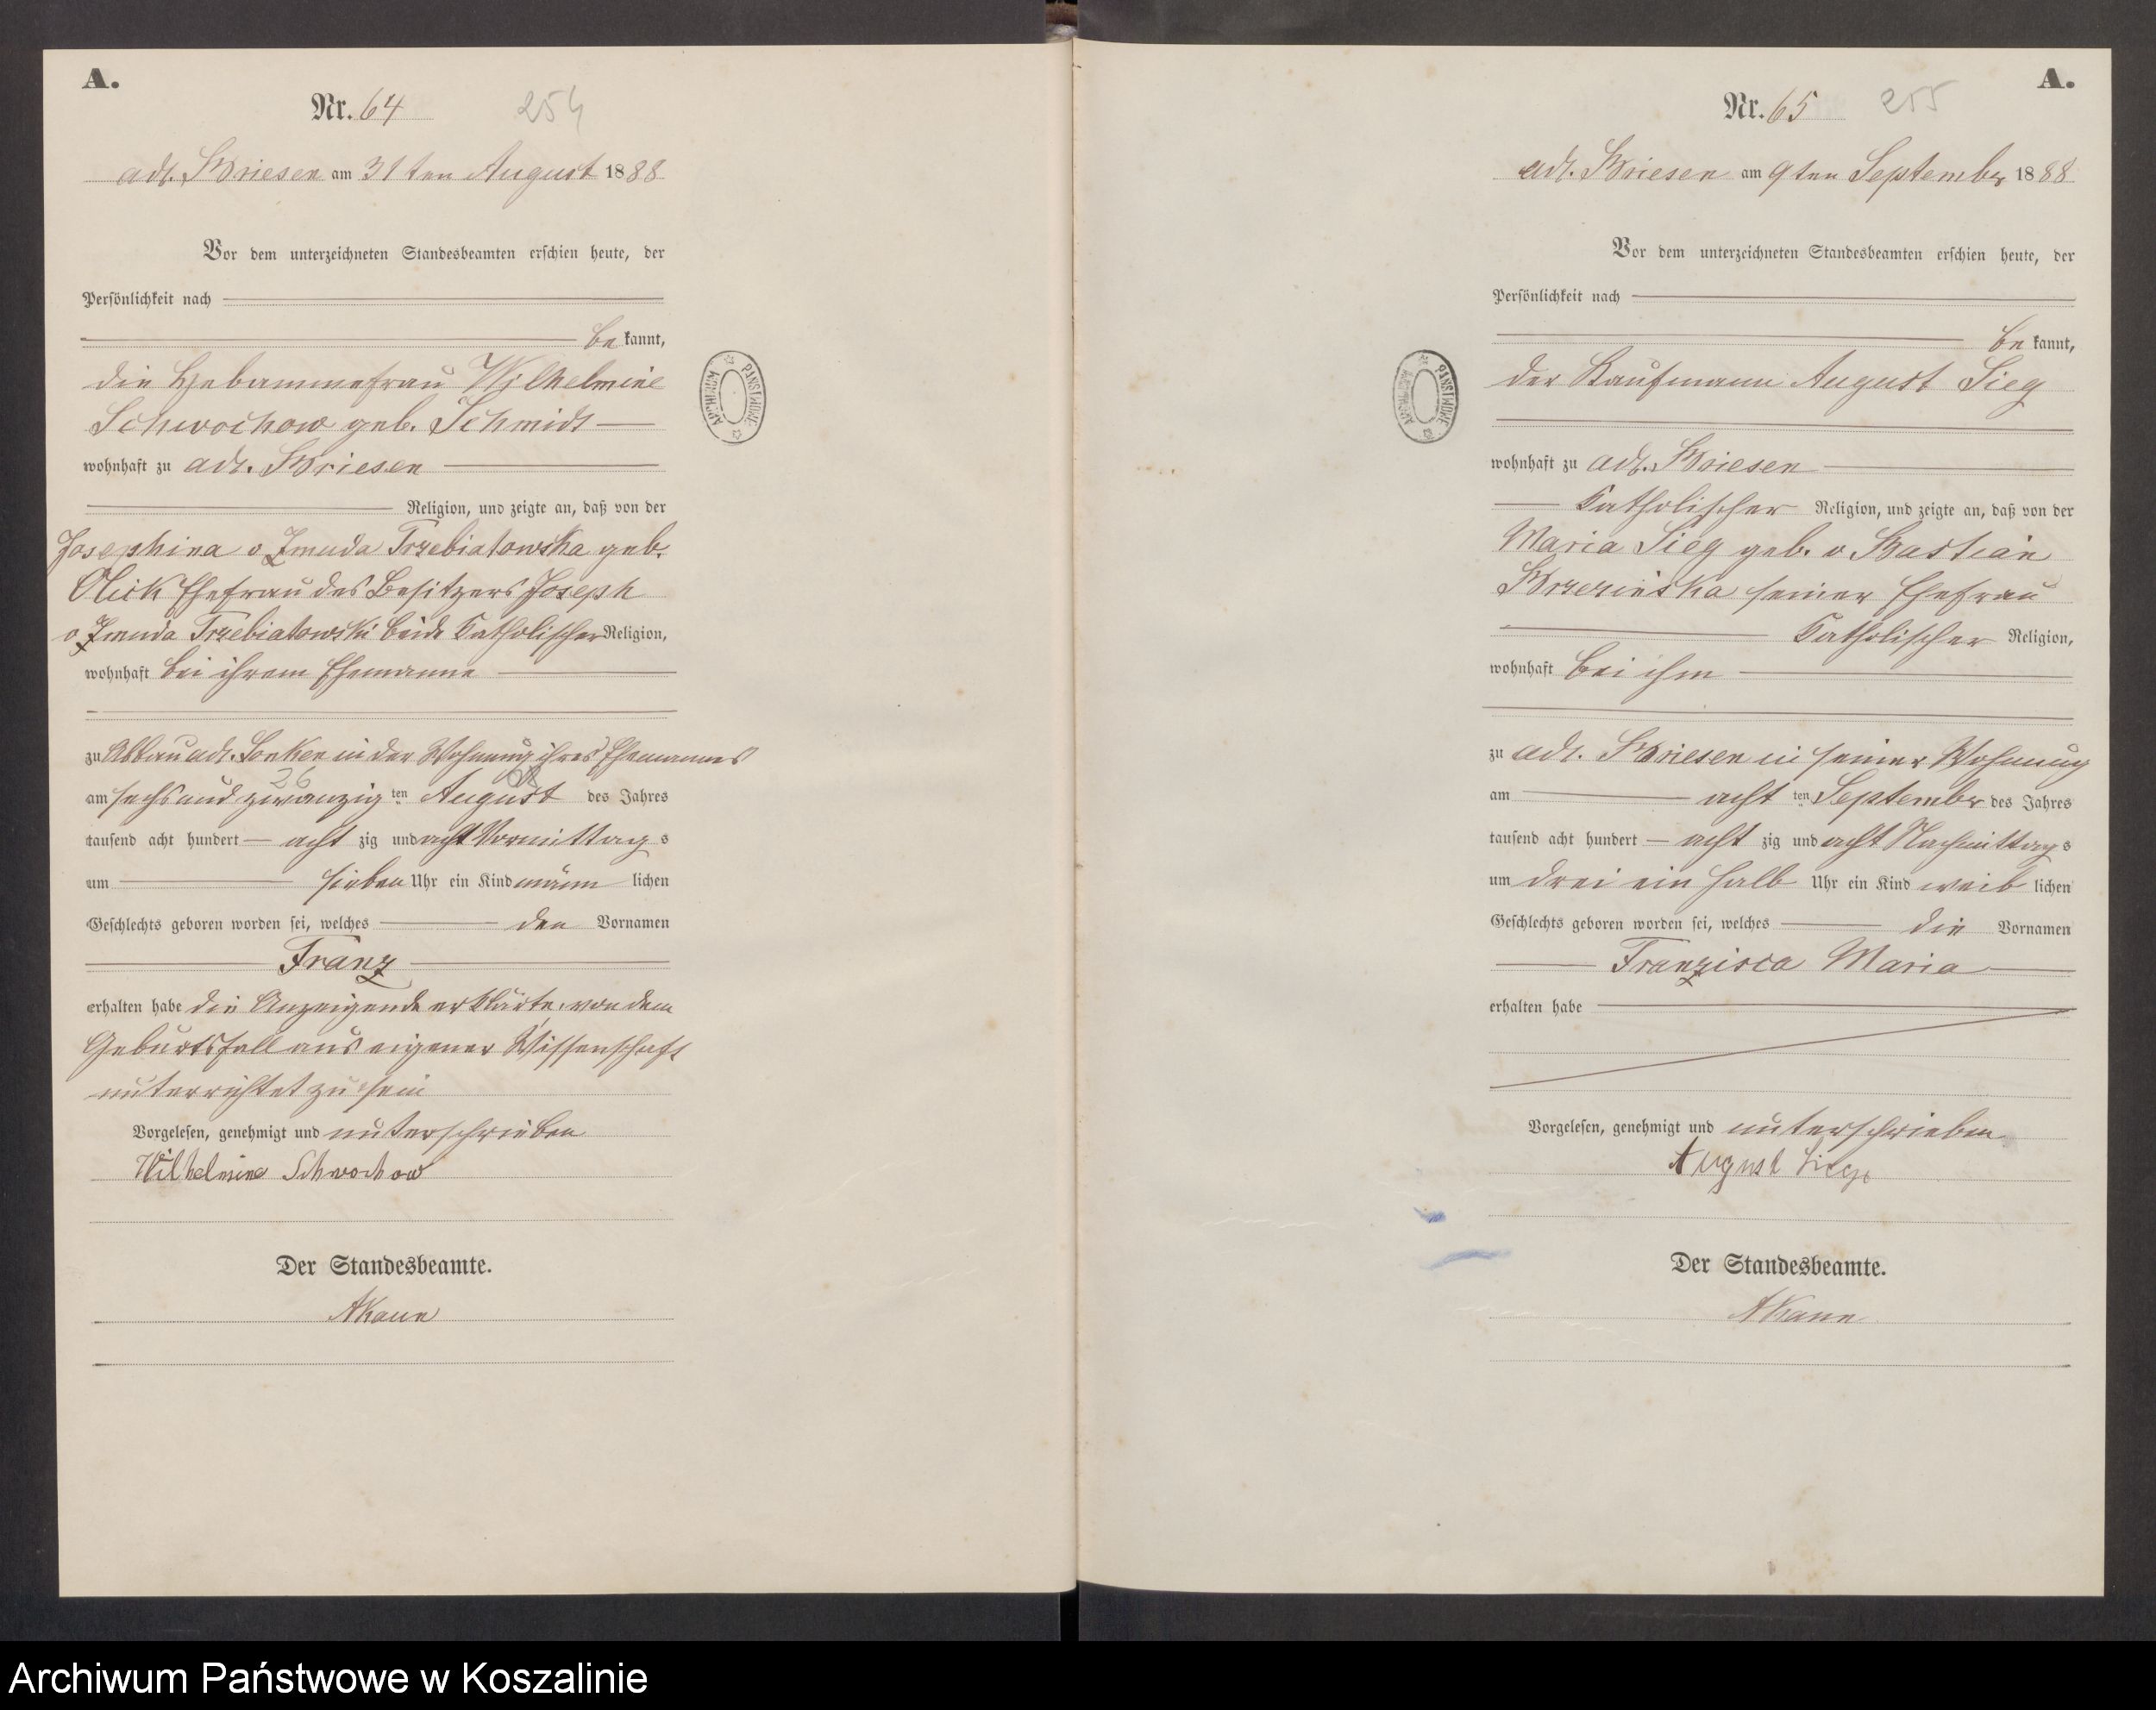 A.
Nr. 64
254
adl. Briesen am 31ten August 1888
Vor dem unterzeichneten Standesbeamten erschien heute, der
Persönlichkeit nach
be kannt,
die Hebammefrau Wilhelmine
Schwochow geb. Schmidt
wohnhaft zu adl. Briesen
Religion, und zeigte an, daß von der
Josephina v Zmuda Trzebiatowska geb.
Olick Ehefrau des Besitzers Joseph
v Zmuda Trzebiatowski beide Katholischer Religion,
wohnhaft bei ihrem Ehemanne
zu Abbau adl. Sonken in der Wohnung ihres Ehemannes
26
am sechs und zwanzig ten August des Jahres
tausend acht hundert acht zig und acht Vormittag s
um sieben Uhr ein Kind männ lichen
Geschlechts geboren worden sei, welches den Vornamen
Franz
erhalten habe die Anzeigende erklärte, von dem
Geburtsfall aus eigener Wissenschaft
unterrichtet zu sein
Vorgelesen, genehmigt und unterschrieben
Wilhelmine Schwochow
Der Standesbeamte.
ARCHIWUM PAŃSTWOWE
A.
Nr. 65
255
adl. Briesen am 9ten September 1888
Vor dem unterzeichneten Standesbeamten erschien heute, der
Persönlichkeit nach
be kannt,
der Kaufmann August Sieg
wohnhaft zu adl. Briesen
Katholischer Religion, und zeigte an, daß von der
Maria Sieg geb. v Bastian
Brzezinska seiner Ehefrau
Katholischer Religion,
wohnhaft bei ihm
zu adl. Briesen in seiner Wohnung
am acht ten September des Jahres
tausend acht hundert acht zig und acht Nachmittag s
um drei ein halb Uhr ein Kind weib lichen
Geschlechts geboren worden sei, welches die Vornamen
Franzisca Maria
erhalten habe
Vorgelesen, genehmigt und unterschrieben
August Sieg
Der Standesbeamte.
ARCHIWUM PAŃSTWOWE
Archiwum Państwowe w Koszalinie